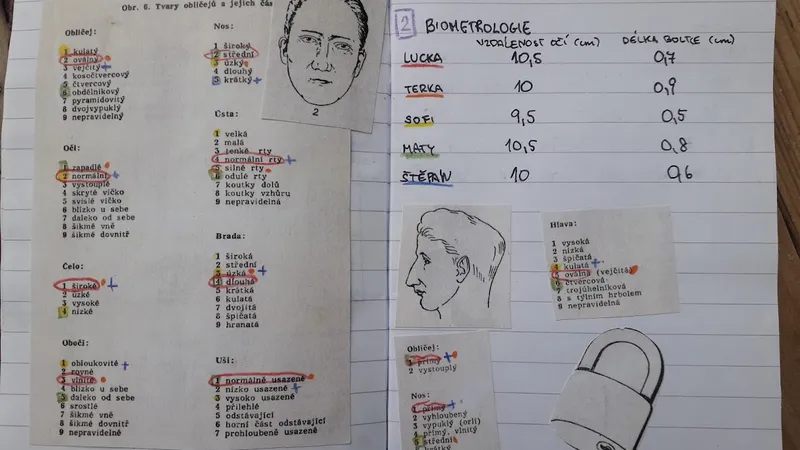 Obr. 6. Tvary obličejů a jejich čás
Obličej:
1 kulatý
2 oválný
3 vejčitý
4 kosočtvercový
5 čtvercový
6 obdélníkový
7 pyramidovitý
8 dvojvypuklý
9 nepravidelný
Oči:
1 zapadlé
2 normální
3 vystouplé
4 skryté víčko
5 svislé víčko
6 blízko u sebe
7 daleko od sebe
8 šikmé vně
9 šikmé dovnitř
Čelo:
1 široké
2 úzké
3 vysoké
4 nízké
Obočí:
1 obloukovité
2 rovné
3 vlnité
4 blízko u sebe
5 daleko od sebe
6 srostlé
7 šikmé vně
8 šikmé dovnitř
9 nepravidelné
Nos:
1 široký
2 střední
3 úzký
4 dlouhý
5 krátký
Ústa:
1 velká
2 malá
3 tenké rty
4 normální rty
5 silné rty
6 odulé rty
7 koutky dolů
8 koutky vzhůru
9 nepravidelná
Brada:
1 široká
2 střední
3 úzká
4 dlouhá
5 krátká
6 kulatá
7 dvojitá
8 špičatá
9 hranatá
Uši:
1 normálně usazené
2 nízko usazené
3 vysoko usazené
4 přilehlé
5 odstávající
6 horní část odstávající
7 prohloubeně usazené
2
2 BIOMETROLOGIE
VZDÁLENOST OČÍ (cm) DÉLKA BOLTCE (cm)
LUCKA 10,5 0,7
TERKA 10 0,9
SOFI 9,5 0,5
MATY 10,5 0,8
ŠTĚPÁN 10 0,6
Hlava:
1 vysoká
2 nízká
3 špičatá
4 kulatá
5 oválná (vejčitá)
6 čtvercová
7 trojúhelníková
8 s týlním hrbolem
9 nepravidelná
Obličej:
1 přímý
2 vystouplý
Nos:
1 přímý
2 vyhloubený
3 vypuklý (orlí)
4 přímý, vlnitý
5 střední
6 krátký